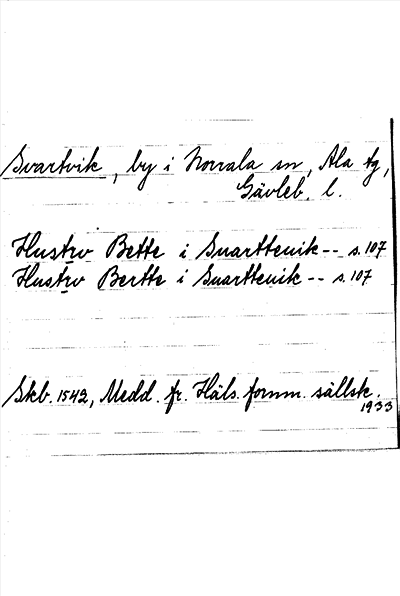 Svartvik, by i Norrala sn, Ala tg,
Gävleb. l.
Hustrv Bette i Suarttevik-- s. 107
Hustrv Bertte i Suarttevik-- s. 107
Skb. 1542, Medd. fr. Häls. fornm. sällsk.
1933